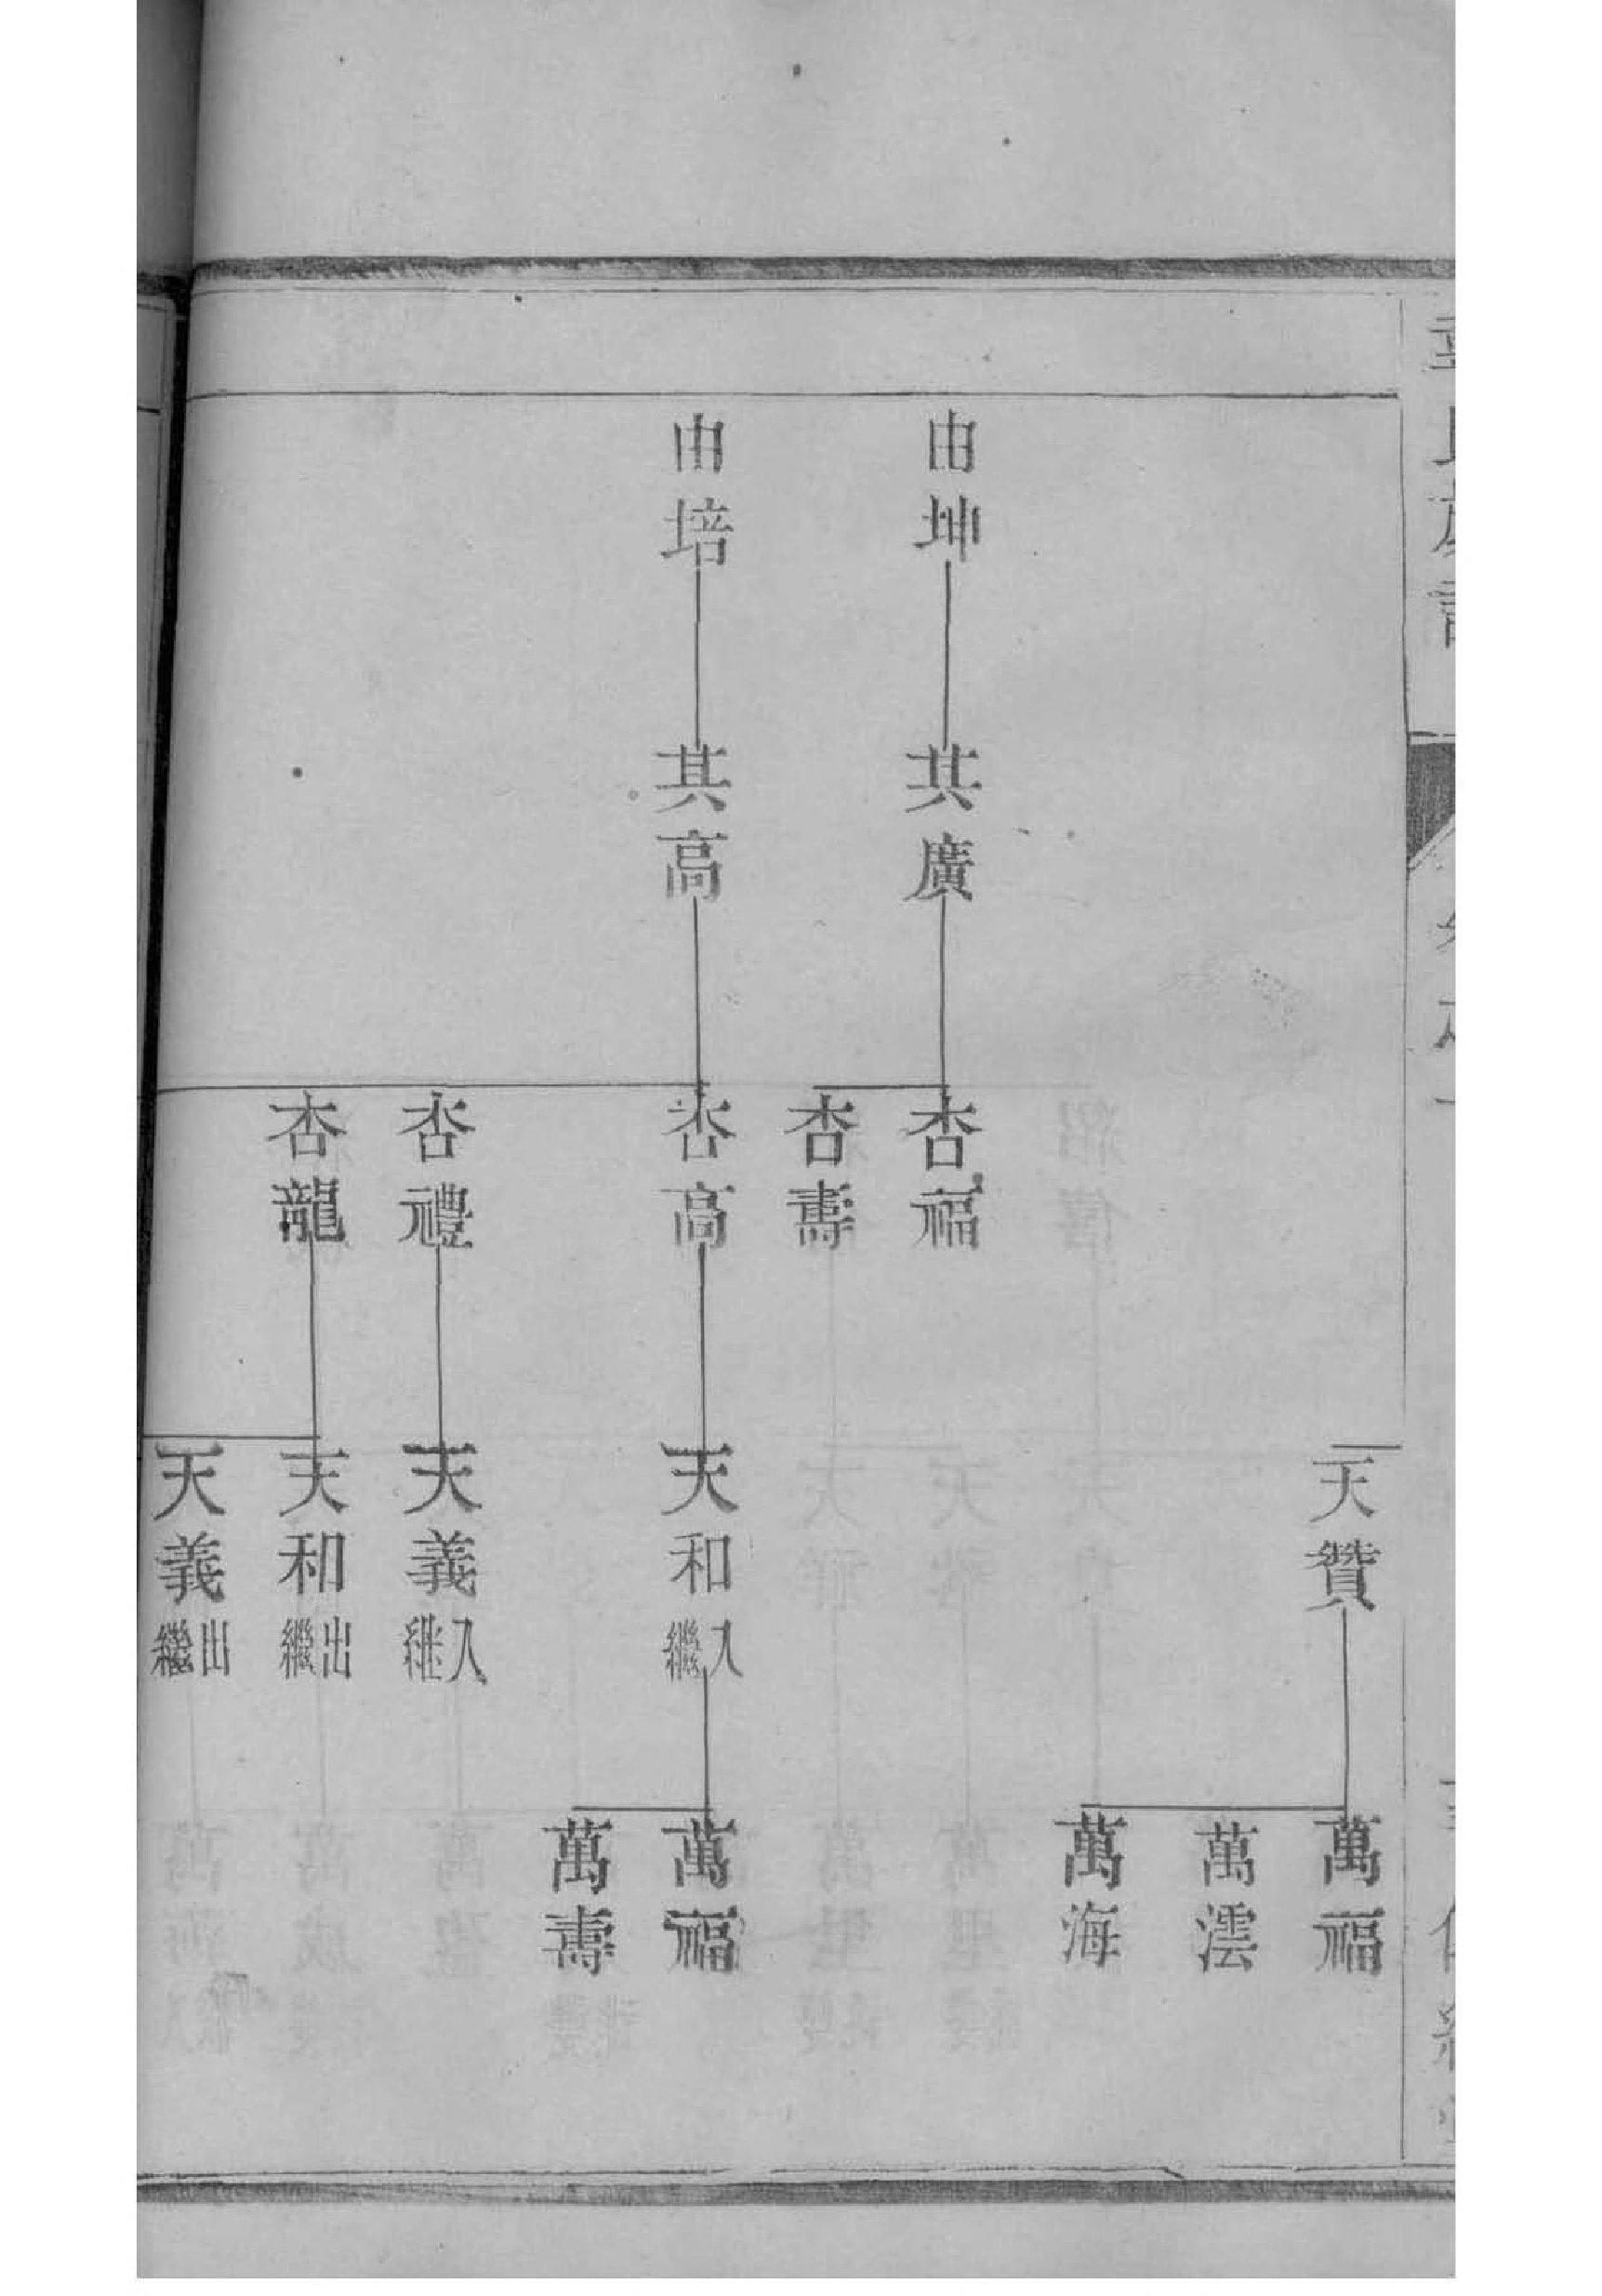 天贊
萬福
萬澐
萬海
由坤
其廣
杏福
杏壽
由培
其高
杏高
天和入繼
萬福
萬壽
杏禮
天義入継
杏龍
天和出繼
天義出繼